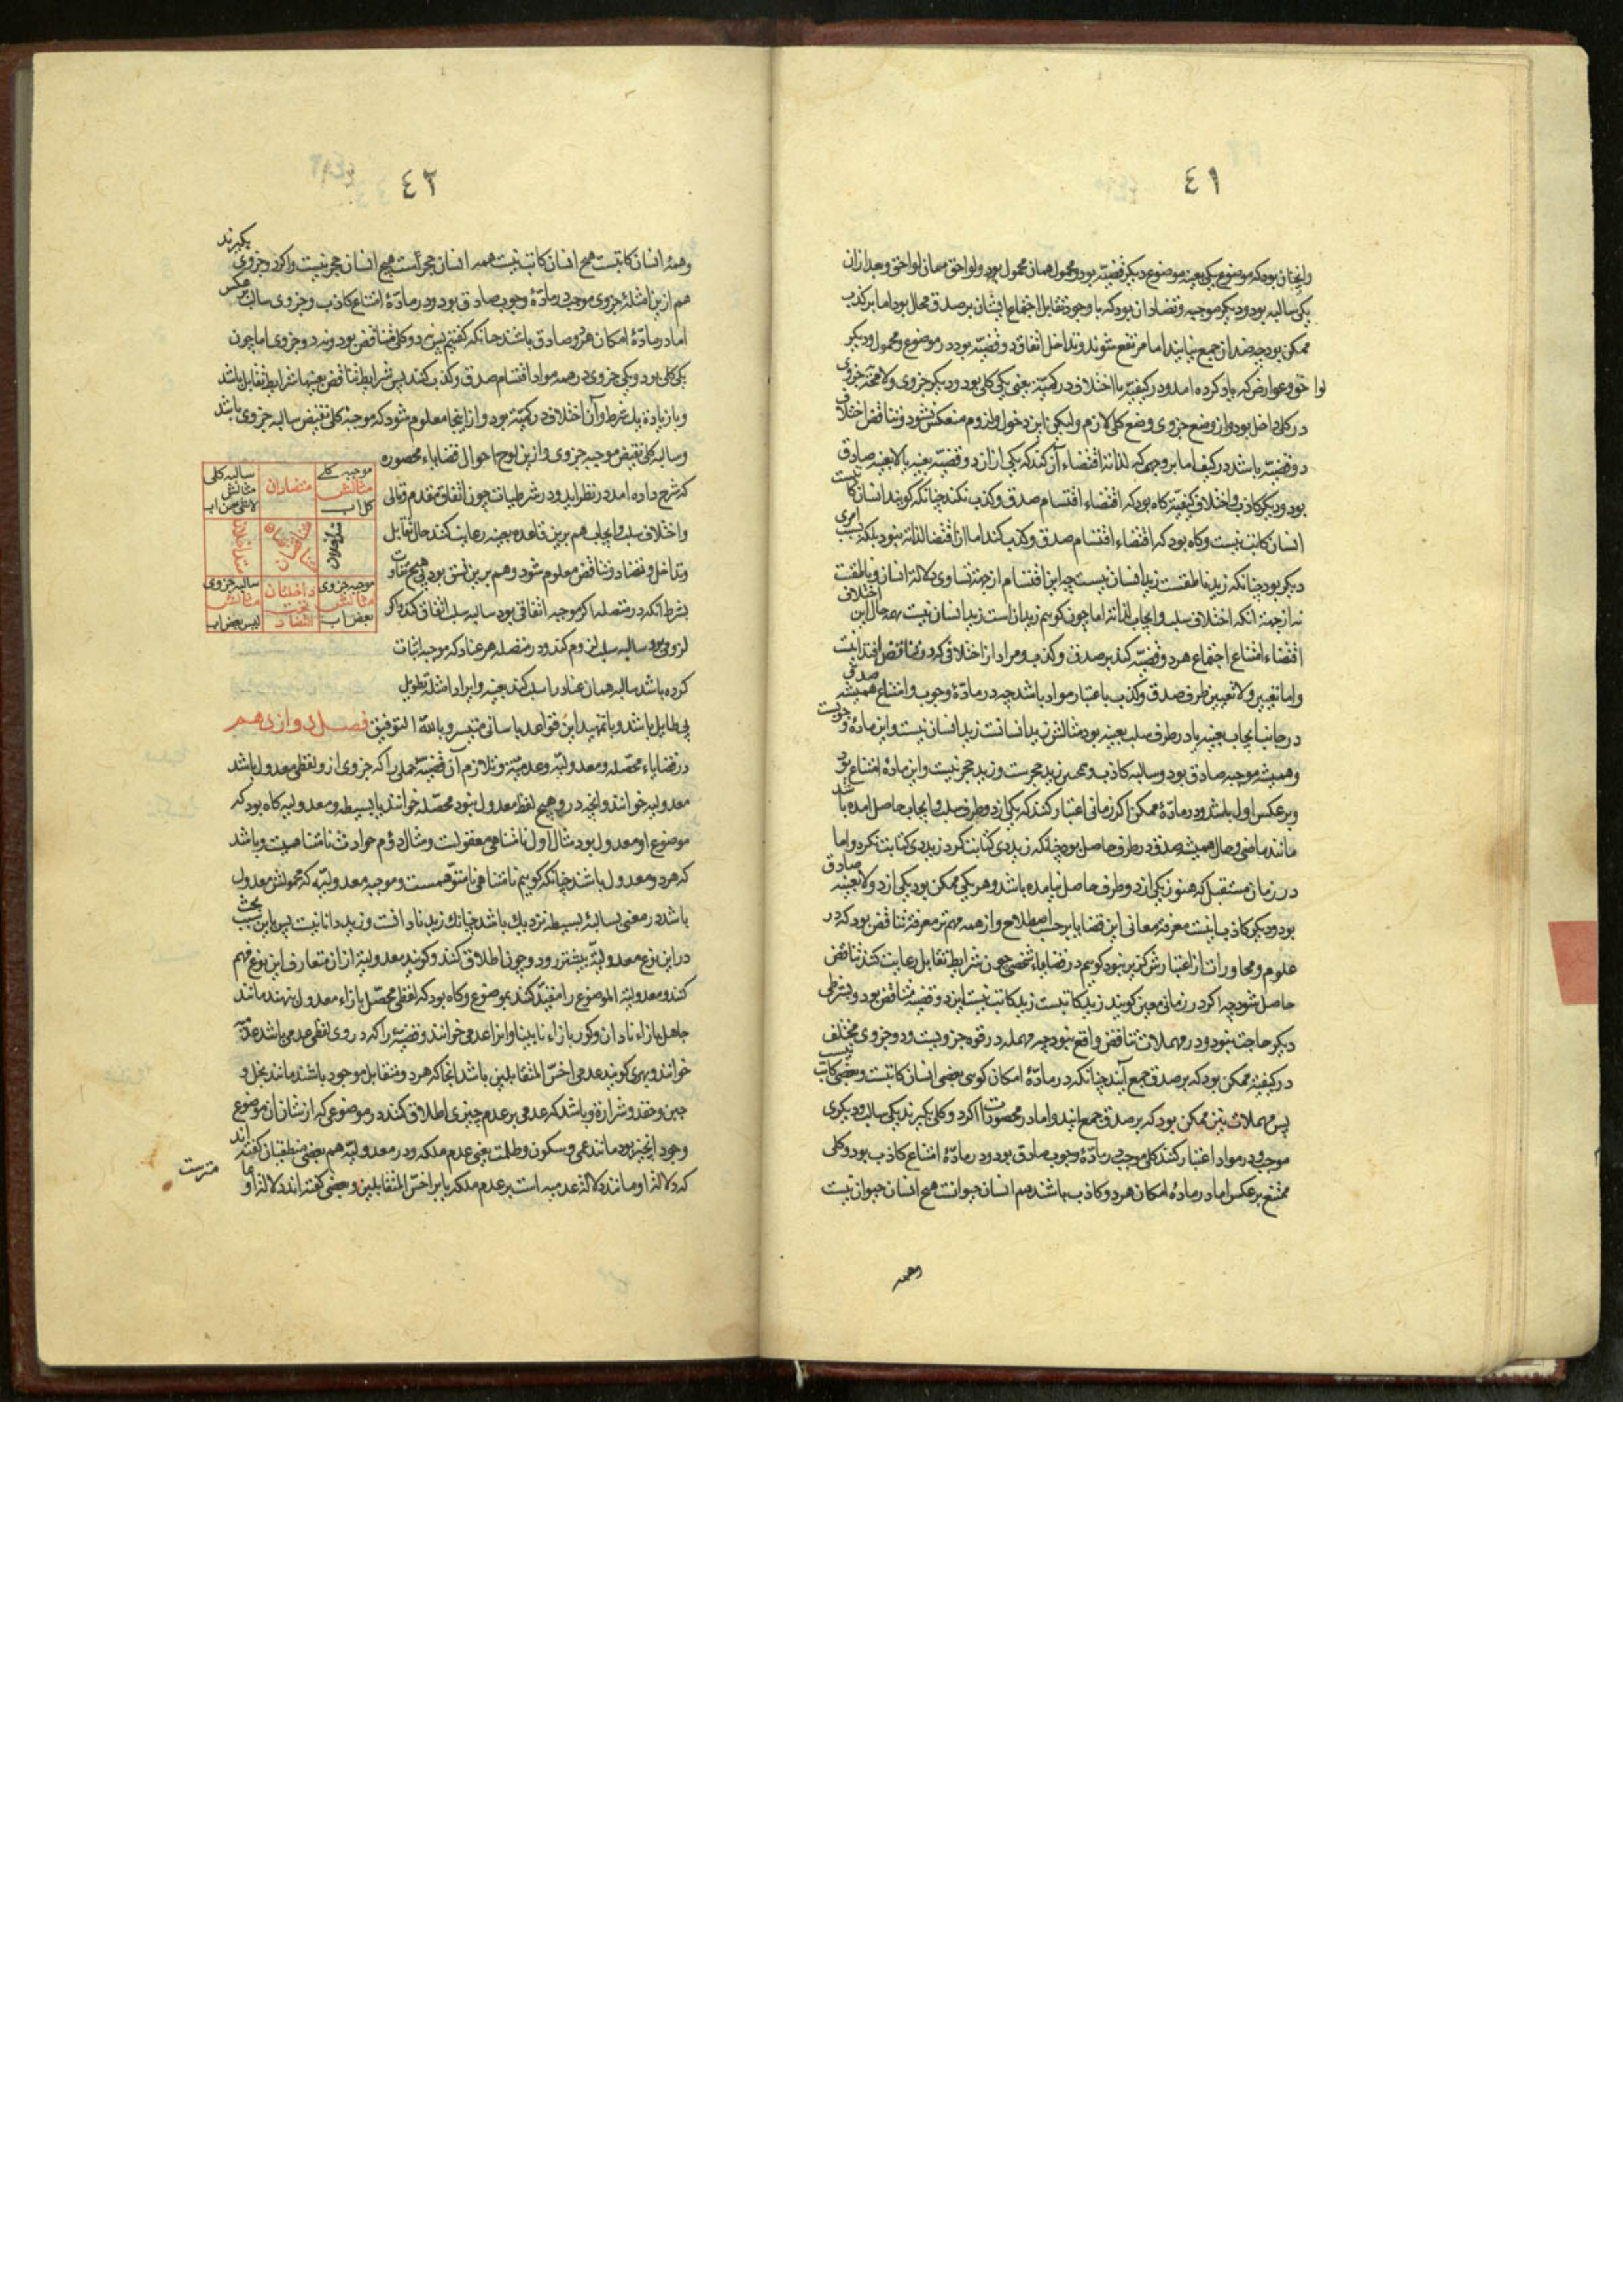 ٤١
وانچنان بود که موضوع یکی بعینه موضوع دیگر قضیه بود و محمول همان محمول بود و لواحق همان لواحق و بعد از آن
یکی سالبه بود و دیگر موجبه و تضاد آن بود که با وجود تقابل اجتماع ایشان بر صدق محال بود اما بر کذب
ممکن بود چه ضدان جمع نیایند اما مرتفع شوند و تداخل اتفاق دو قضیه بود در موضوع و محمول و دیگر
لواحق و عوارض که یاد کرده امد و در کیفیت با اختلاف در کمیت یعنی یکی کلی بود و دیگر جزوی ولا محاله جزوی
در کلی داخل بود و از وضع جزوی وضع کلی لازم ولیکن این دخول و لزوم منعکس نشود و تناقض اختلاف
دو قضیه باشد در کیف اما بر وجهی که لذاته اقتضاء آن کند که یکی از آن دو قضیه بعینه یا لا بعینه صادق
بود و دیگر کاذب و اختلاف کیفیت گاه بود که اقتضاء اقتسام صدق و کذب نکند چنانکه گویند انسان کاتبست
انسان کاتب نیست و گاه بود که اقتضاء اقتسام صدق و کذب کند اما آن اقتضا لذاته نبود بلکه بسبب امری
دیگر بود چنانکه زید ناطقست زید انسان نیست چه این اقتسام از جهة تساوی دلالة انسان و ناطقست
نه از جهة آنکه اختلاف سلب و ایجاب لذاته اما چون گوییم زید انسان است زید انسان نیست بهمه حال این اختلاف
اقتضاء امتناع اجتماع هر دو قضیه کند بر صدق و کذب و مراد از اختلافی که در تناقض افتد اینست
واما تعیین ولا تعیین طرف صدق و کذب باعتبار مواد باشد چه در مادّهٔ وجوب و امتناع همیشه صدق
در جانب ایجاب بعینه یا در طرف سلب بعینه بود مثالش زید انسانست زید انسان نیست و این مادهٔ وجوبست
و همیشه موجبه صادق بود و سالبه کاذب و همچنین زید حجرست و زید حجر نیست و این مادهٔ امتناع بود
و بر عکس اول باشد و در مادّهٔ ممکن اگر زمانی اعتبار کنند که یکی از دو طرف سلب و ایجاب حاصل امده باشد
مانند ماضی و حال همیشه صدق در طرف حاصل بود چنانکه زید دی کتابت کرد زید دی کتابت نکرد و اما
در زمان مستقبل که هنوز یکی از دو طرف حاصل نیامده باشد و هر یکی ممکن بود یکی از دو لا بعینه صادق
بود و دیگر کاذب اینست معرفة معانی این قضایا بر حسب اصطلاح و از همه مهم تر معرفة تناقض بود که در
علوم و محاورات از اعتبارش گزیر نبود گوییم در قضایاء شخصی چون شرایط تقابل رعایت کنند تناقض
حاصل شود چه اگر در زمانی معین گویند زید کاتبست زید کاتب نیست این دو قضیه متناقض بود و بشرطی
دیگر حاجت نبود و در مهملات تناقض واقع نبود چه مهمله در قوه جزویست و دو جزوی مختلف
در کیفیة ممکن بود که بر صدق جمع آیند چنانکه در مادّهٔ امکان گویی بعضی انسان کاتبست و بعضی کاتب نیست
پس مهملات نیز ممکن بود که بر صدق جمع ایند و اما در محصورات اگر دو کلی گیرند یکی سالب و دیگری
موجب و در مواد اعتبار کنند کلی موجب در مادّهٔ وجوب صادق بود و در مادّهٔ امتناع کاذب بود و کلی
ممتنع بر عکس اما در مادهٔ امکان هر دو کاذب باشند همه انسان حیوانست هیچ انسان حیوان نیست
وهمه
٤٢
وهمهٔ انسان کاتبست هیچ انسان کاتب نیست همه انسان حجرست هیچ انسان حجر نیست و اگر دو جزوی بگیرند
هم از ین امثلهٔ جزوی موجب در مادّهٔ وجوب صادق بود و در مادّهٔ امتناع کاذب و جزوی سالب بر عکس
اما در مادّهٔ امکان هر دو صادق باشند چنانکه گفتیم پس نه دو کلی متناقض بود و نه دو جزوی اما چون
یکی کلی بود و یکی جزوی در همه مواد اقتسام صدق و کذب کنند پس شرایط تناقض بعینها شرایط تقابل باشد
و با زیادة یک شرط و آن اختلاف در کمیّة بود و از اینجا معلوم شود که موجبهٔ کلی نقیض سالبه جزوی باشد
و سالبه کلی نقیض موجبه جزوی و از ین لوح احوال قضایاء محصوره
که شرح داده امد در نظر اید و در شرطیات چون اتفاق مقدم و تالی
و اختلاف سلب و ایجاب هم برین قاعده بعینه رعایت کنند حال تقابل
و تداخل و تضاد و تناقض معلوم شود و هم برین نسق بود بی هیچ تفاوت
بشرط آنکه در متصله اگر موجبه اتفاقی بود سالبه سلب اتفاق کند و اگر
لزومی بود سالبه سلب لزوم کند و در منفصله هر عناد که موجبه اثبات
کرده باشد سالبه همان عناد را سلب کند بعینه و ایراد امثله تطویل
بی طایل باشد و با تمهید این قواعد باسانی متیسر و بالله التوفیق فصل دوازدهم
موجبه کلی مثالش کل اب
متضادان
سالبه کلی مثالش لاشی من اب
متداخلان
متناقضان
متداخلان
موجبه جزوی مثالش بعض اب
داخلتان تحت التضاد
سالبه جزوی مثالش لیس بعض اب
در قضایاء محصّله و معدولیّه و عدمیّه و تلازم آن قضیّهٔ حملی را که جزوی از و لفظی معدول باشد
معدولیه خوانند و انچه در و هیچ لفظ معدول نبود محصّله خوانند یا بسیطه و معدولیه گاه بود که
موضوع او معدول بود مثال اول نامتناهی معقولست و مثال دؤم حوادث نامتناهیست و باشد
که هر دو معدول باشند چنانکه گوییم نامتناهی نامتوهمست و موجبه معدولیّه که محمولش معدول
باشد در معنی بسالبهٔ بسیطه نزدیک باشد چنانک زید نادانست و زید دانا نیست پس باین سبب بحث
در این نوع معدولیّه بیشتر رود و چون اطلاق کنند و گویند معدولیه از ان متعارف این نوع فهم
کنند و معدولیّة الموضوع را مقیّد کنند بموضوع و گاه بود که لفظی محصّل بازاء معدول نهند مانند
جاهل بازاء نادان و کور بازاء نابینا و انرا عدمی خوانند و قضیّه را که در وی لفظی عدمی باشد عدمیّه
خوانند و بهری گویند عدمی اخسّ المتقابلین باشد انجا که هر دو متقابل موجود باشند مانند بخل و
جبن و حقد و شرارة و باشد که عدمی بر عدم چیزی اطلاق کنند در موضوعی که از شان ان موضوع
وجود انچیز بود مانند عمی و سکون و ظلمت یعنی عدم ملکه و در معدولیّه هم بعضی منطقیان گفته اند
که دلالة او مانند دلالة عدمیه است بر عدم ملکه یا بر اخسّ المتقابلین و بعضی گفته اند دلالة او